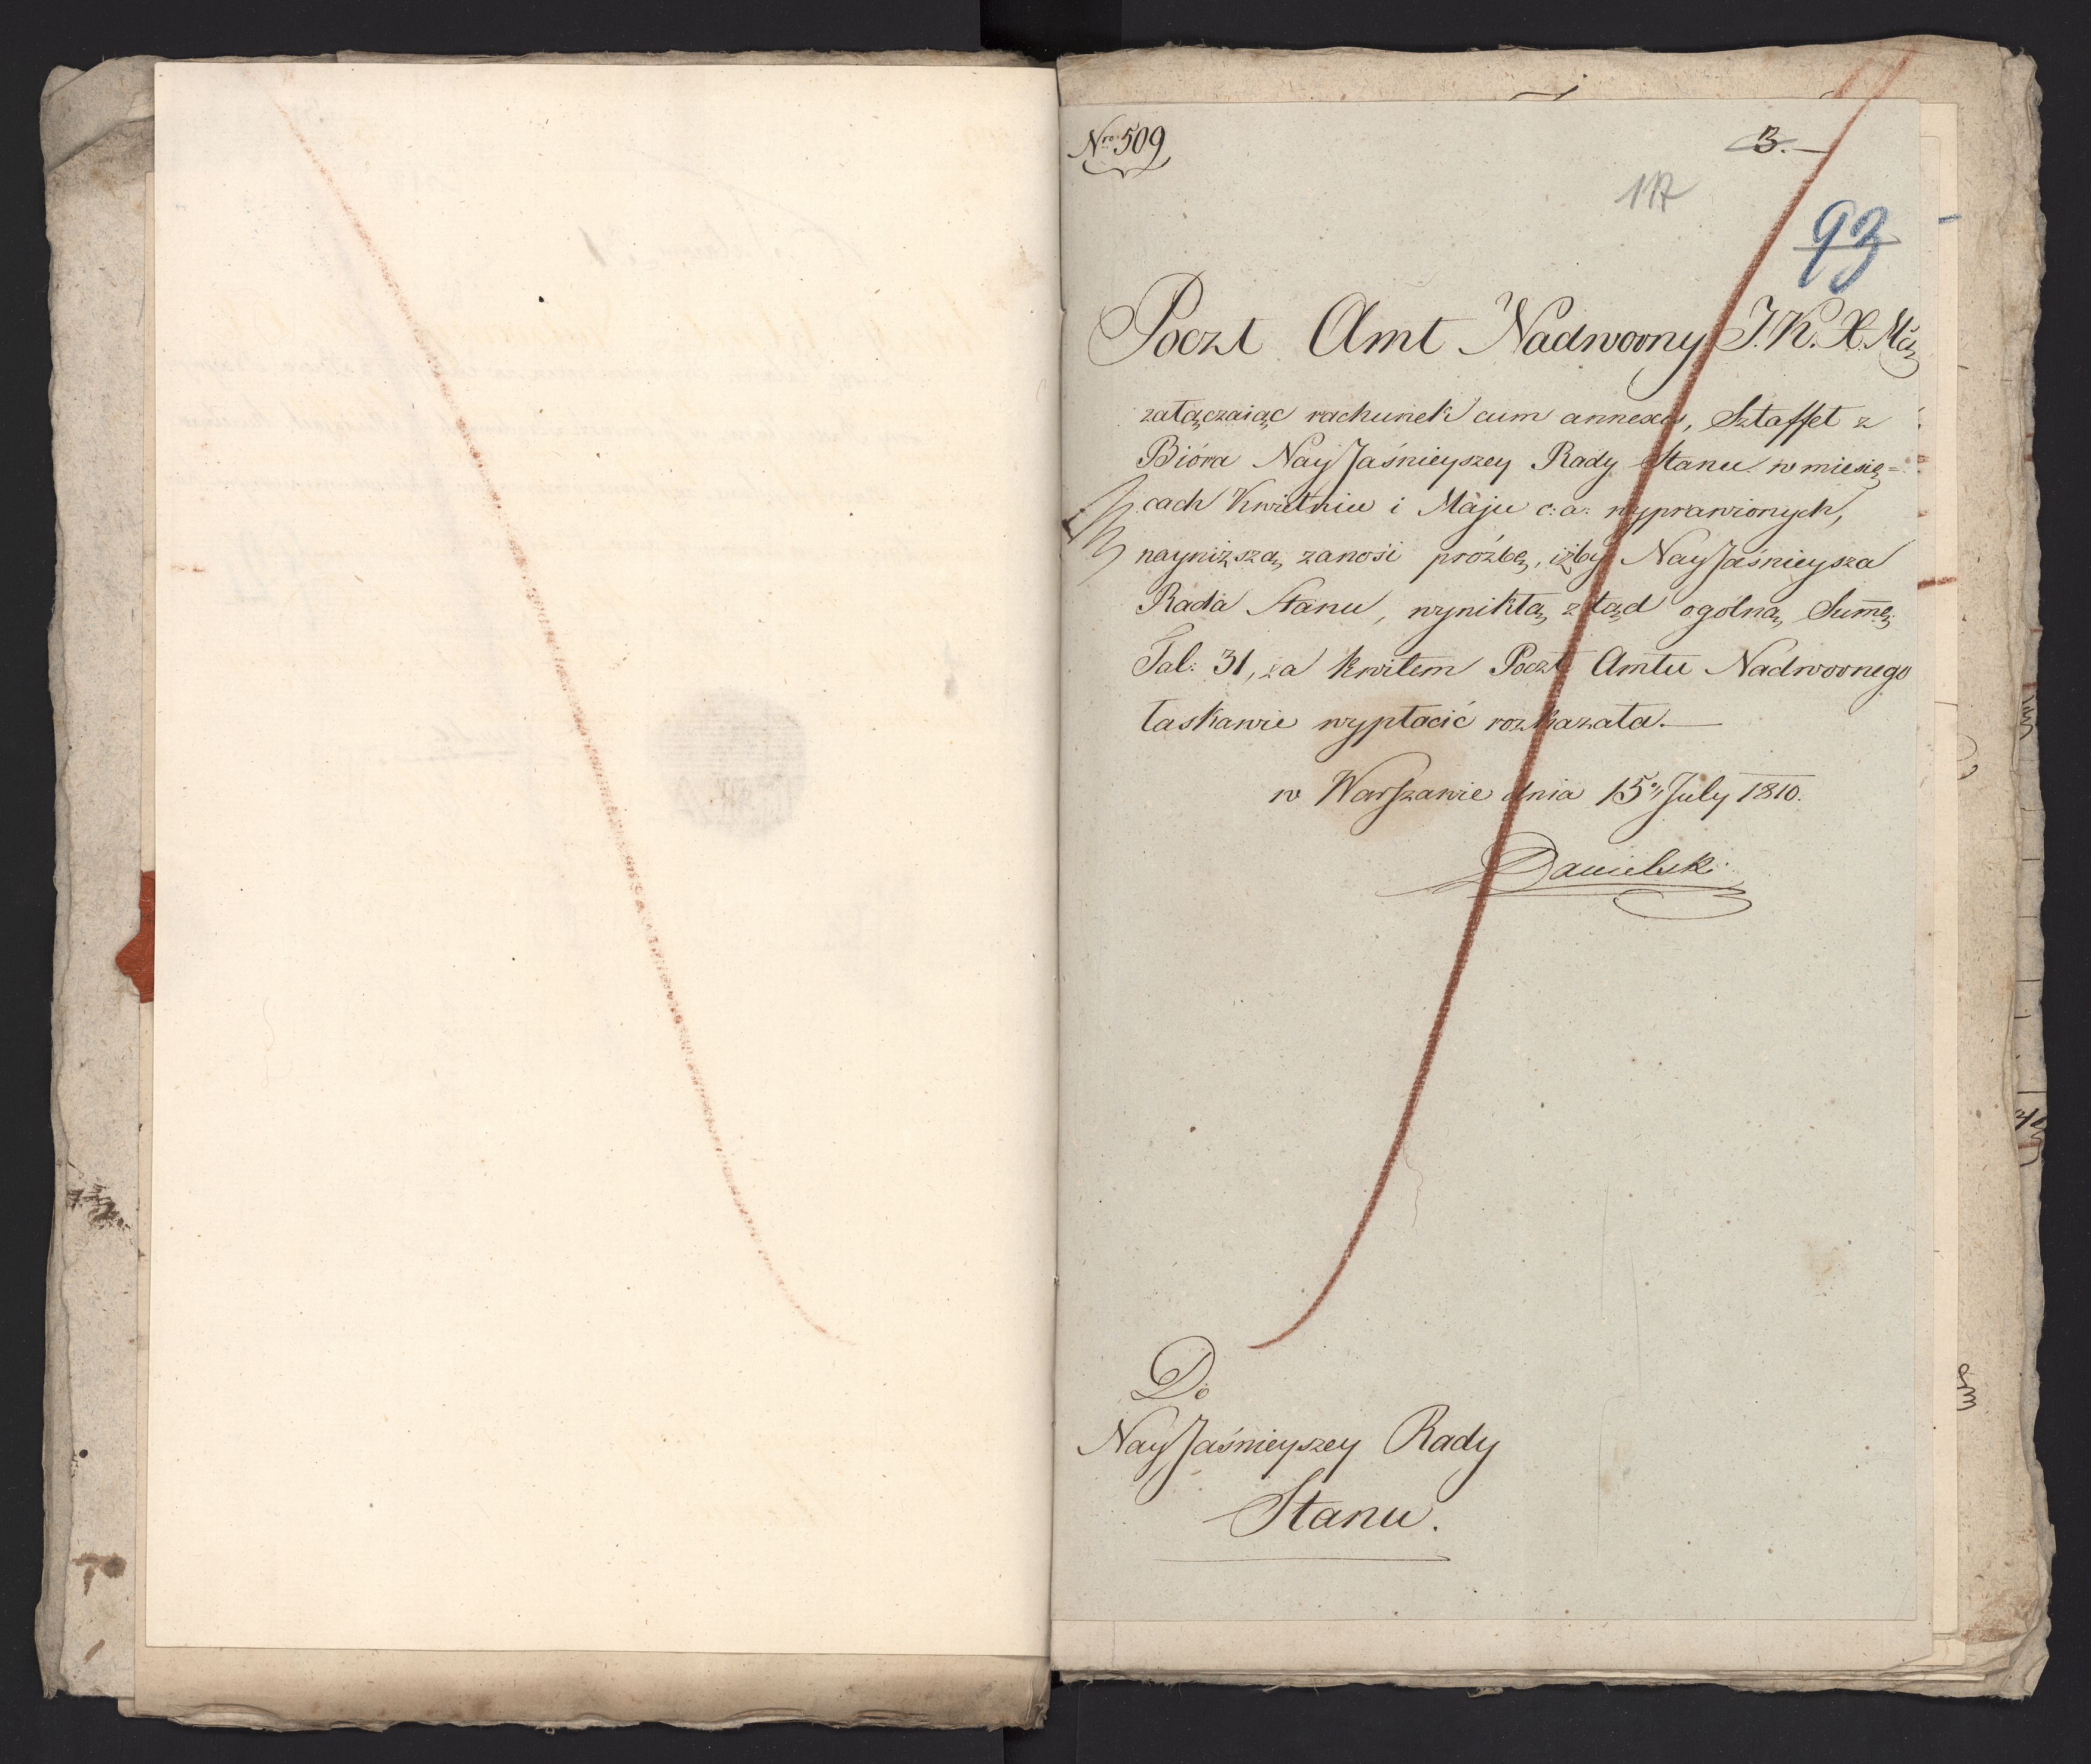 Nro 509
3.
117
93
Poczt Amt Nadworny J. K. X. Mci
załączaiąc rachunek cum annexis, Sztaffet z
Bióra NayJaśnieyszey Rady Stanu w miesię=
cach Kwietniu i Maju c: a: wyprawionych,
nayniższą zanosi prożbę, iżby NayJaśnieysza
Rada Stanu, wynikłą ztąd ogólną Summę
Tal: 31, za kwitem Poczt Amtu Nadwornego
łaskawie wypłacić rozkazała.
w Warszawie dnia 15 July 1810.
Danielski
Do
NayJaśnieyszey Rady
Stanu.